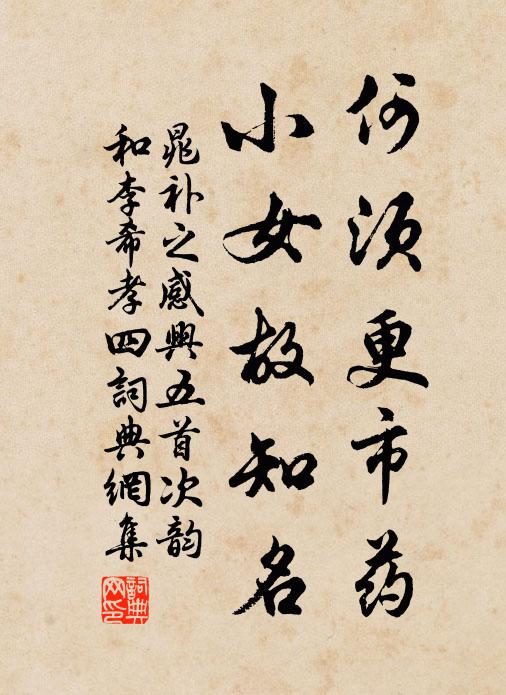 何须更市药
小女故知名
晁补之感興五首次韵
和李希孝四詞典網集
詞典網印